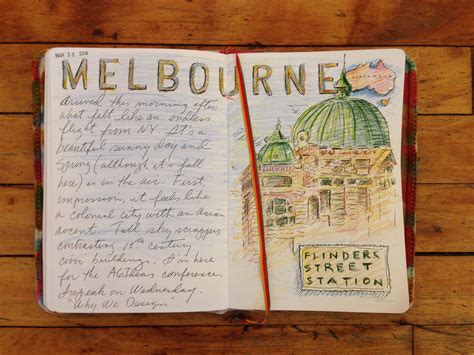 MAR 30 2014
MELBOURNE
arrived this morning after
what felt like an endless
flight from NY. It's a
beautiful sunny day and
Spring (although it's fall
here) is in the air. First
impression, it feels like
a colonial city with an Asian
accent. Tall sky scrapers
contrasting 19th century
civic buildings. I'm here
for the AGIdeas conference.
I speak on Wednesday.
"Why We Design"
FLINDERS
STREET
STATION